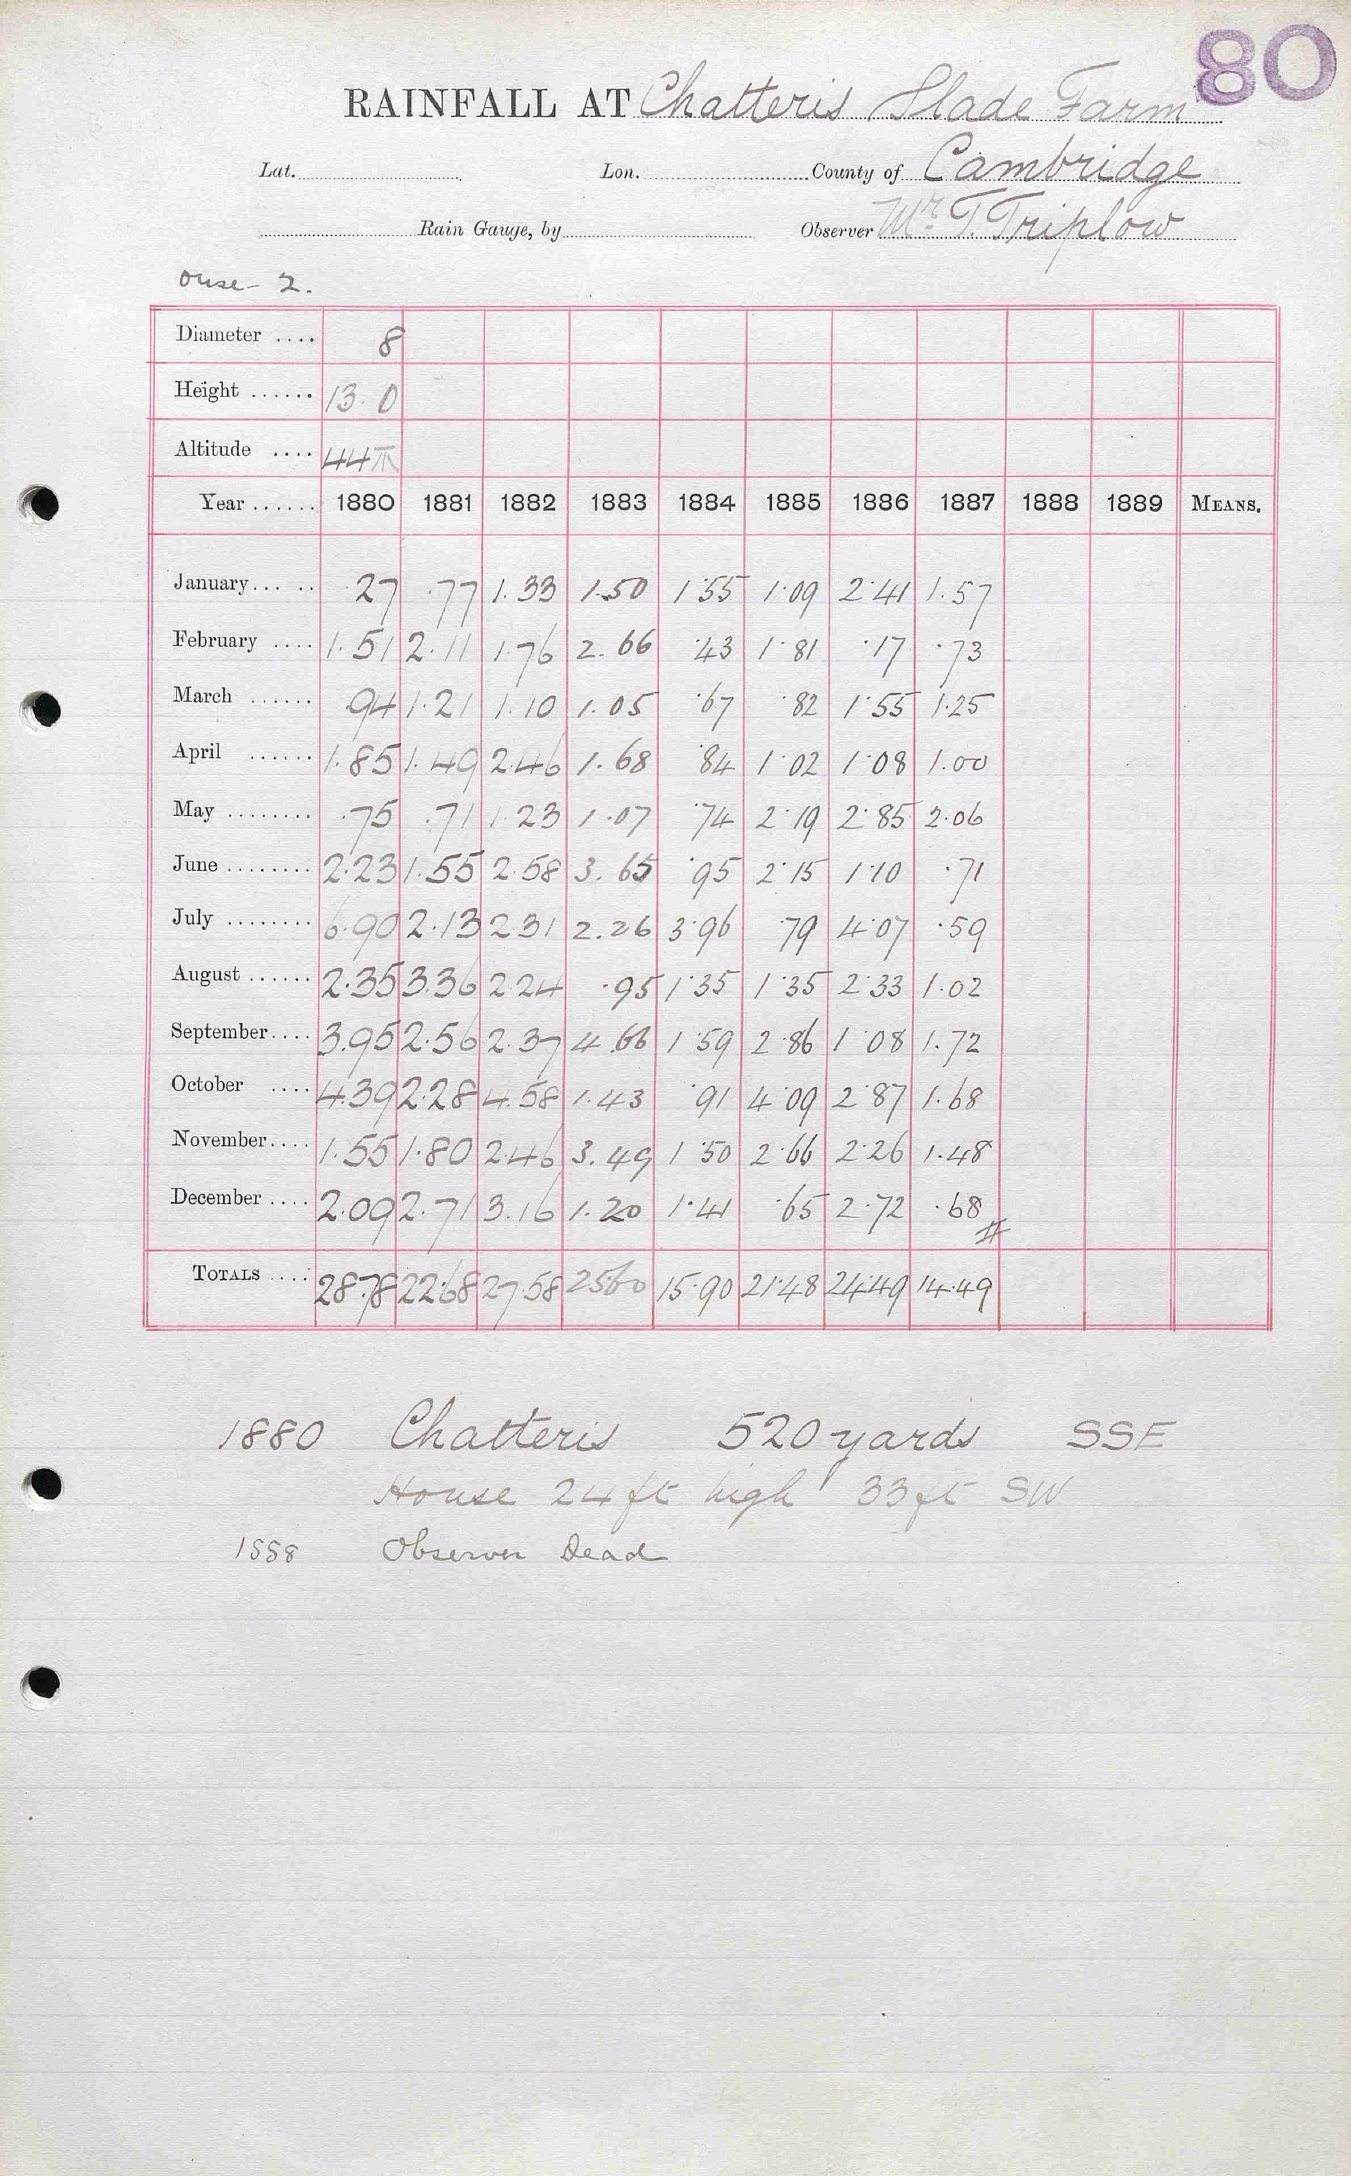 80
RAINFALL AT Chatteris Slade Farm
Lat. Lon. County of Cambridge
Rain Gauge, by Observer Mr. T. Triplow
Ouse - 2.
Diameter .... 8
Height ...... 13. 0
Altitude .... 44
Year ...... 1880 1881 1882 1883 1884 1885 1886 1887 1888 1889 MEANS.
January... .. .27 .77 1.33 1.50 1.55 1.09 2.41 1.57
February .... 1.51 2.11 1.76 2.66 .43 1.81 .17 .73
March ...... .94 1.21 1.10 1.05 .67 .82 1.55 1.25
April ...... 1.85 1.49 2.46 1.68 .84 1.02 1.08 1.00
May ........ .75 .71 1.23 1.07 .74 2.19 2.85 2.06
June ........ 2.23 1.55 2.58 3.65 .95 2.15 1.10 .71
July ........ 6.90 2.13 2.31 2.26 3.96 .79 4.07 .59
August ...... 2.35 3.36 2.24 .95 1.35 1.35 2.33 1.02
September.... 3.95 2.56 2.37 4.66 1.59 2.86 1.08 1.72
October .... 4.39 2.28 4.58 1.43 .91 4.09 2.87 1.68
November.... 1.55 1.80 2.46 3.49 1.50 2.66 2.26 1.48
December .... 2.09 2.71 3.16 1.20 1.41 .65 2.72 .68
TOTALS .... 28.78 22.68 27.58 25.60 15.90 21.48 24.49 14.49
1880 Chatteris 520 yards SSE
House 24 ft high 33 ft SW
1888 Observer Dead